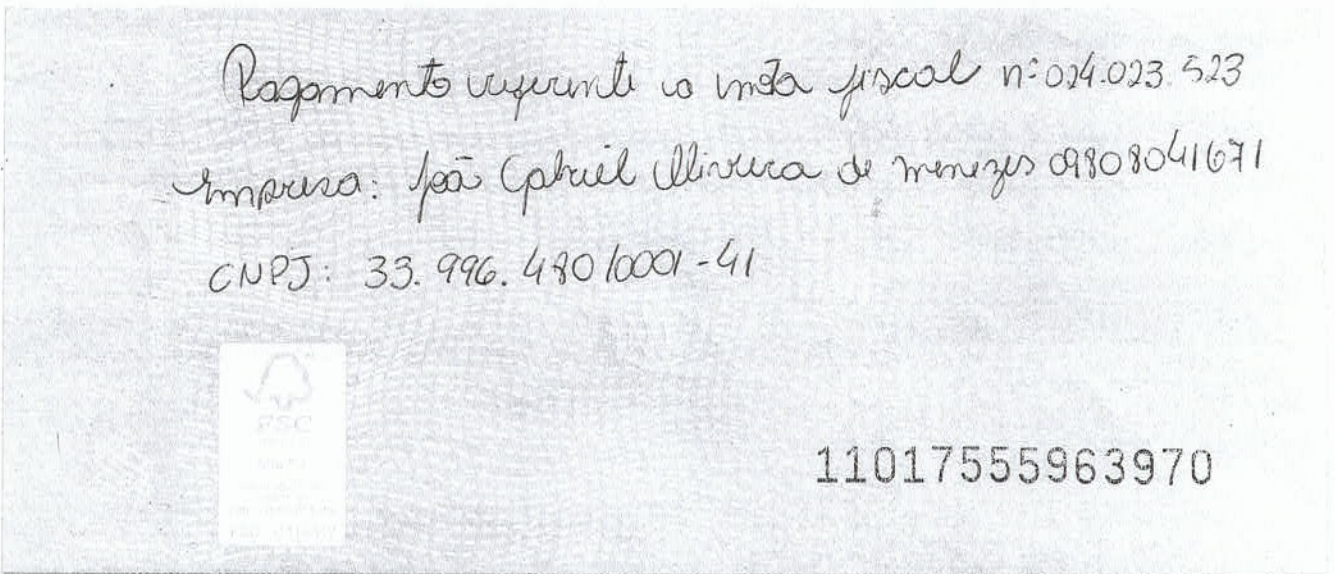 Pagamento referente a nota fiscal nº 024.023.523
Empresa: João Gabriel Oliveira de menezes 09808041671
CNPJ: 33.996.480/0001-41
FSC
11017555963970